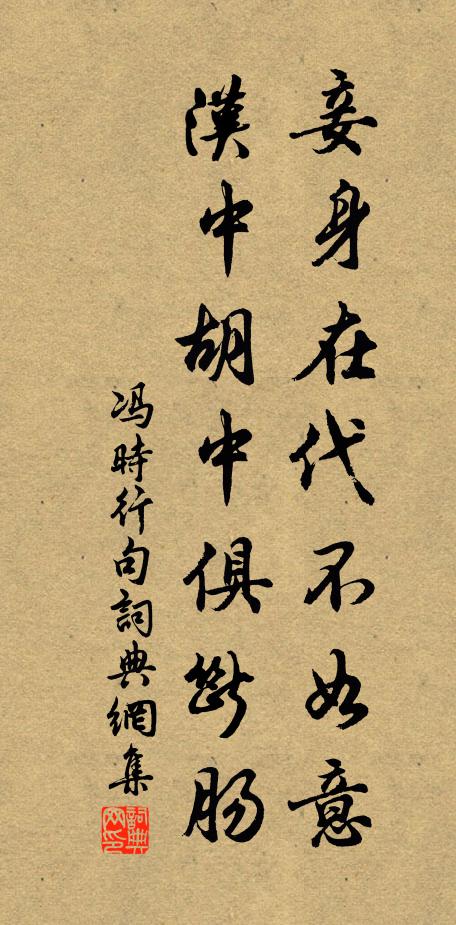 妾身在代不如意
漢中胡中俱斷腸
馮時行句詞典網集
詞典網印